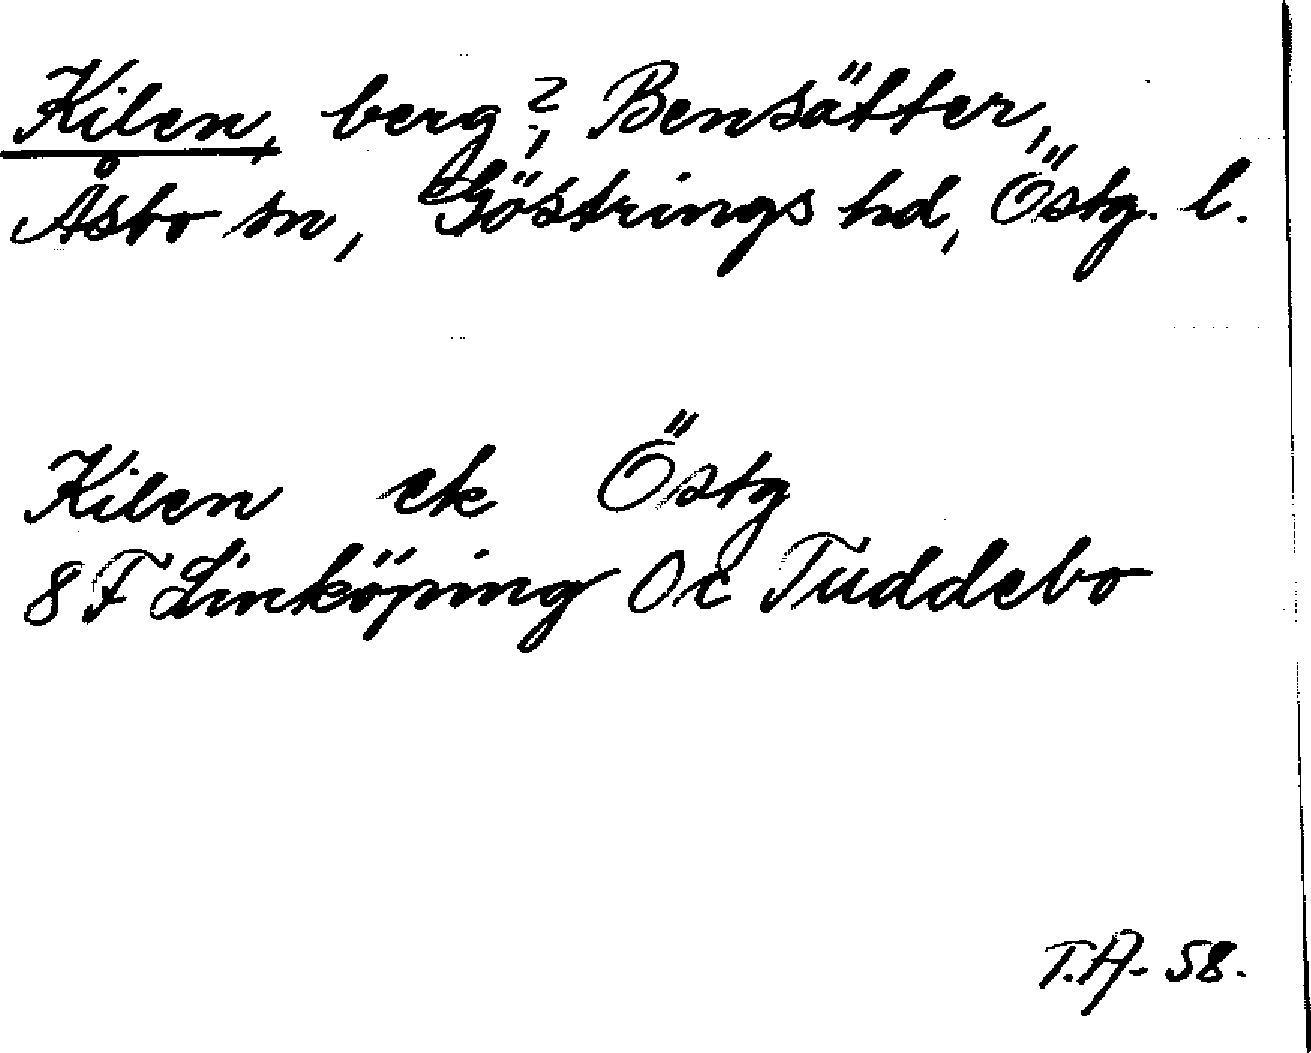 Kilen, berg?, Bensätter,
Åsbo sn, Göstrings hd, Östg. l.
Kilen ek Östg
8 F Linköping 0c Tuddebo
T.A. 58.